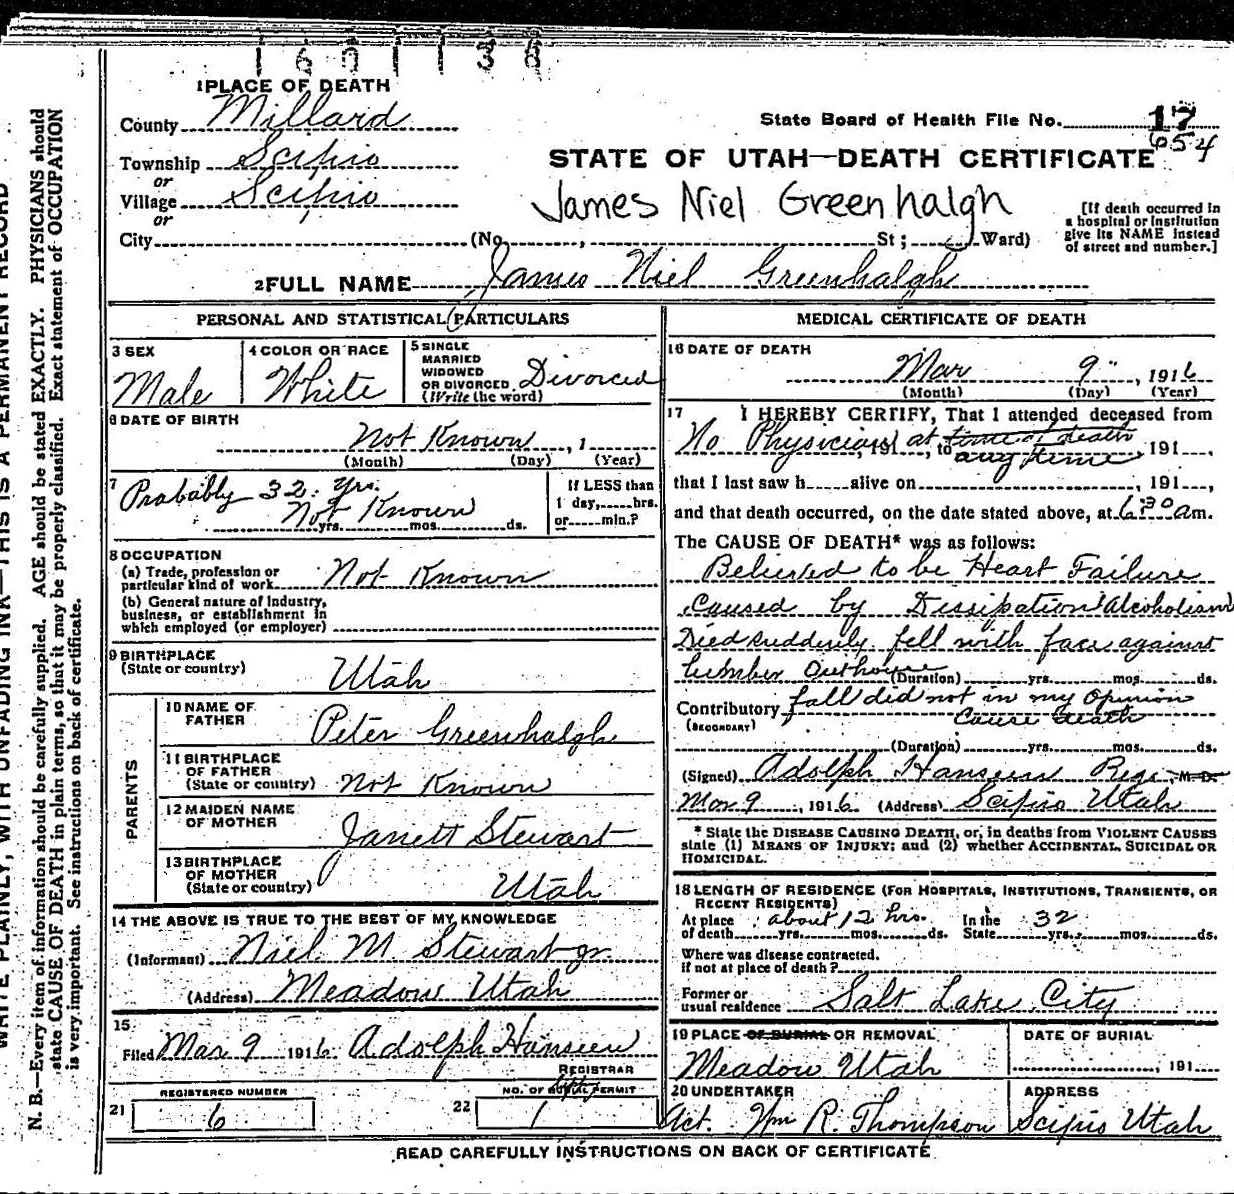 1601138
1 PLACE OF DEATH
County Millard
Township Scipio
or
Village Scipio
or
City (No. , St; Ward)
State Board of Health File No. 17
654
STATE OF UTAH—DEATH CERTIFICATE
James Niel Greenhalgh
[If death occurred in
a hospital or institution
give its NAME instead
of street and number.]
2 FULL NAME James Niel Greenhalgh
PERSONAL AND STATISTICAL PARTICULARS
3 SEX
Male
4 COLOR OR RACE
White
5 SINGLE
MARRIED
WIDOWED
OR DIVORCED Divorced
(Write the word)
6 DATE OF BIRTH
Not Known, 1
(Month) (Day) (Year)
7 Probably 32. yrs.
Not Known
yrs. mos. ds.
If LESS than
1 day, hrs.
or min.?
8 OCCUPATION
(a) Trade, profession or
particular kind of work Not Known
(b) General nature of Industry,
business, or establishment in
which employed (or employer)
9 BIRTHPLACE
(State or country) Utah
PARENTS
10 NAME OF
FATHER Peter Greenhalgh
11 BIRTHPLACE
OF FATHER
(State or country) Not Known
12 MAIDEN NAME
OF MOTHER Janett Stewart
13 BIRTHPLACE
OF MOTHER
(State or country) Utah
14 THE ABOVE IS TRUE TO THE BEST OF MY KNOWLEDGE
(Informant) Niel M Stewart jr.
(Address) Meadow Utah
15
Filed Mar 9 1916 Adolph Hansen
REGISTRAR
REGISTERED NUMBER
21 6
NO. OF BURIAL PERMIT
22 1
MEDICAL CERTIFICATE OF DEATH
16 DATE OF DEATH
Mar 9", 1916
(Month) (Day) (Year)
17 I HEREBY CERTIFY, That I attended deceased from
No Physician at , 191 , to time of death , 191 ,
any time
that I last saw h alive on , 191 ,
and that death occurred, on the date stated above, at 6:30 am.
The CAUSE OF DEATH* was as follows:
Believed to be Heart Failure
Caused by Dissipation Alcoholism
Died suddenly fell with face against
lumber Outhouse (Duration) yrs. mos. ds.
Contributory fall did not in my Opinion
(SECONDARY) Cause death
(Duration) yrs. mos. ds.
(Signed) Adolph Hansen Regi. M.D.
Mar 9, 1916 (Address) Scipio Utah
* State the DISEASE CAUSING DEATH, or, in deaths from VIOLENT CAUSES
state (1) MEANS OF INJURY; and (2) whether ACCIDENTAL, SUICIDAL OR
HOMICIDAL.
18 LENGTH OF RESIDENCE (FOR HOSPITALS, INSTITUTIONS, TRANSIENTS, OR
RECENT RESIDENTS)
At place about 12 hrs. In the 32
of death yrs. mos. ds. State yrs. mos. ds.
Where was disease contracted.
if not at place of death?
Former or
usual residence Salt Lake City
19 PLACE OF BURIAL OR REMOVAL
Meadow Utah
DATE OF BURIAL
, 191
20 UNDERTAKER
Act. Wm R. Thompson
ADDRESS
Scipio Utah
READ CAREFULLY INSTRUCTIONS ON BACK OF CERTIFICATE
WRITE PLAINLY, WITH UNFADING INK—THIS IS A PERMANENT RECORD
N. B.—Every item of information should be carefully supplied. AGE should be stated EXACTLY. PHYSICIANS should
state CAUSE OF DEATH in plain terms, so that it may be properly classified. Exact statement of OCCUPATION
is very important. See instructions on back of certificate.